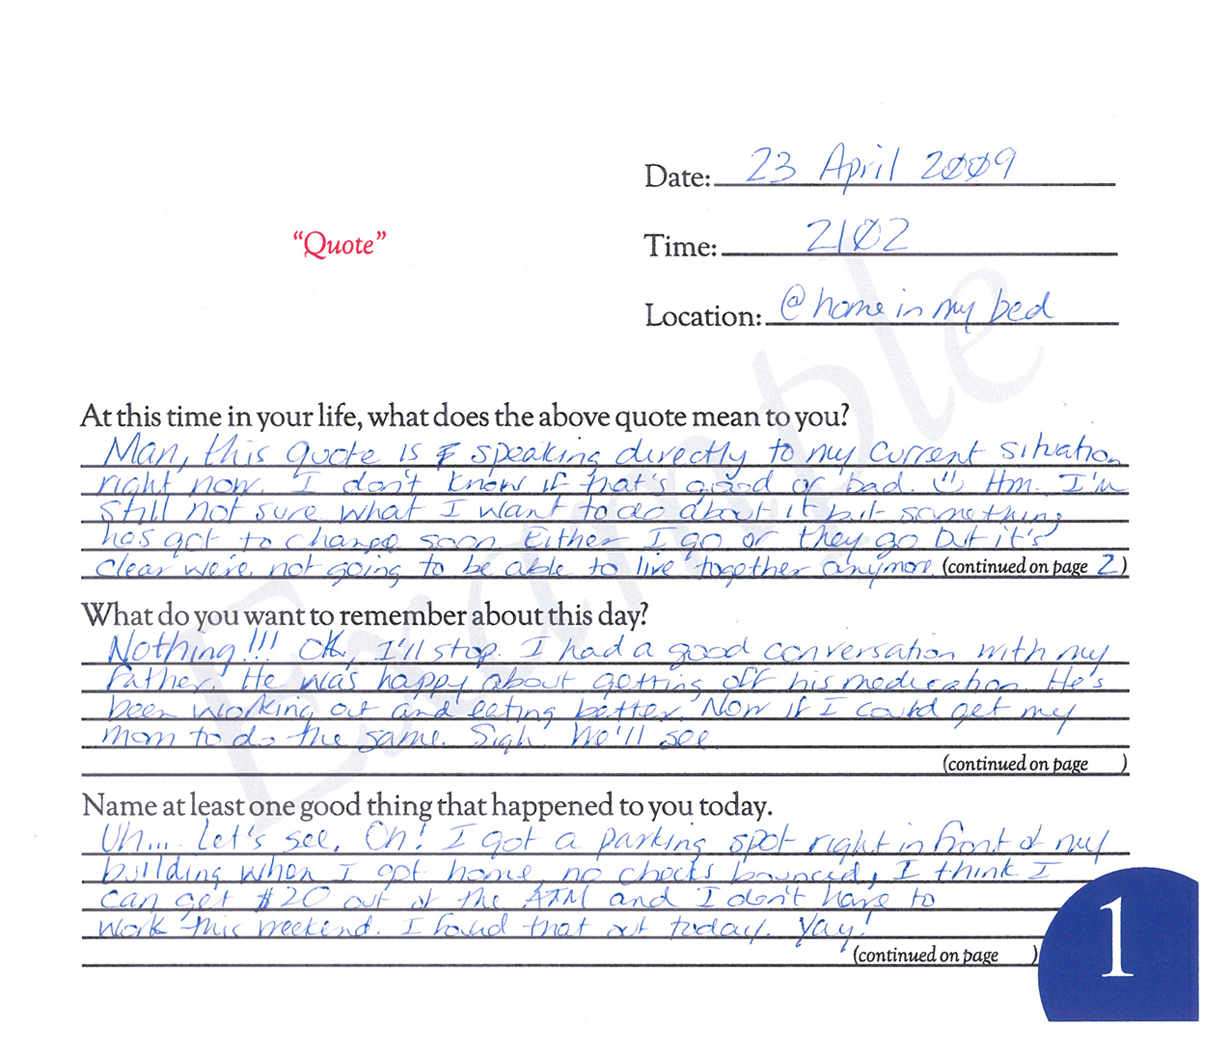 Date: 23 April 2009
"Quote"
Time: 2102
Location: @ home in my bed
Example
At this time in your life, what does the above quote mean to you?
Man, this quote is speaking directly to my current situation
right now. I don't know if that's good or bad. Hm. I'm
still not sure what I want to do about it but something
has got to change soon. Either I go or they go but it's
clear we're not going to be able to live together anymore. (continued on page 2)
What do you want to remember about this day?
Nothing!!! Ok, I'll stop. I had a good conversation with my
father. He was happy about getting off his medication. He's
been working out and eating better. Now if I could get my
mom to do the same. Sigh. We'll see
(continued on page )
Name at least one good thing that happened to you today.
Uh... Let's see. Oh! I got a parking spot right in front of my
building when I got home, no checks bounced, I think I
can get $20 out of the ATM and I don't have to
work this weekend. I found that out today. Yay!
(continued on page )
1